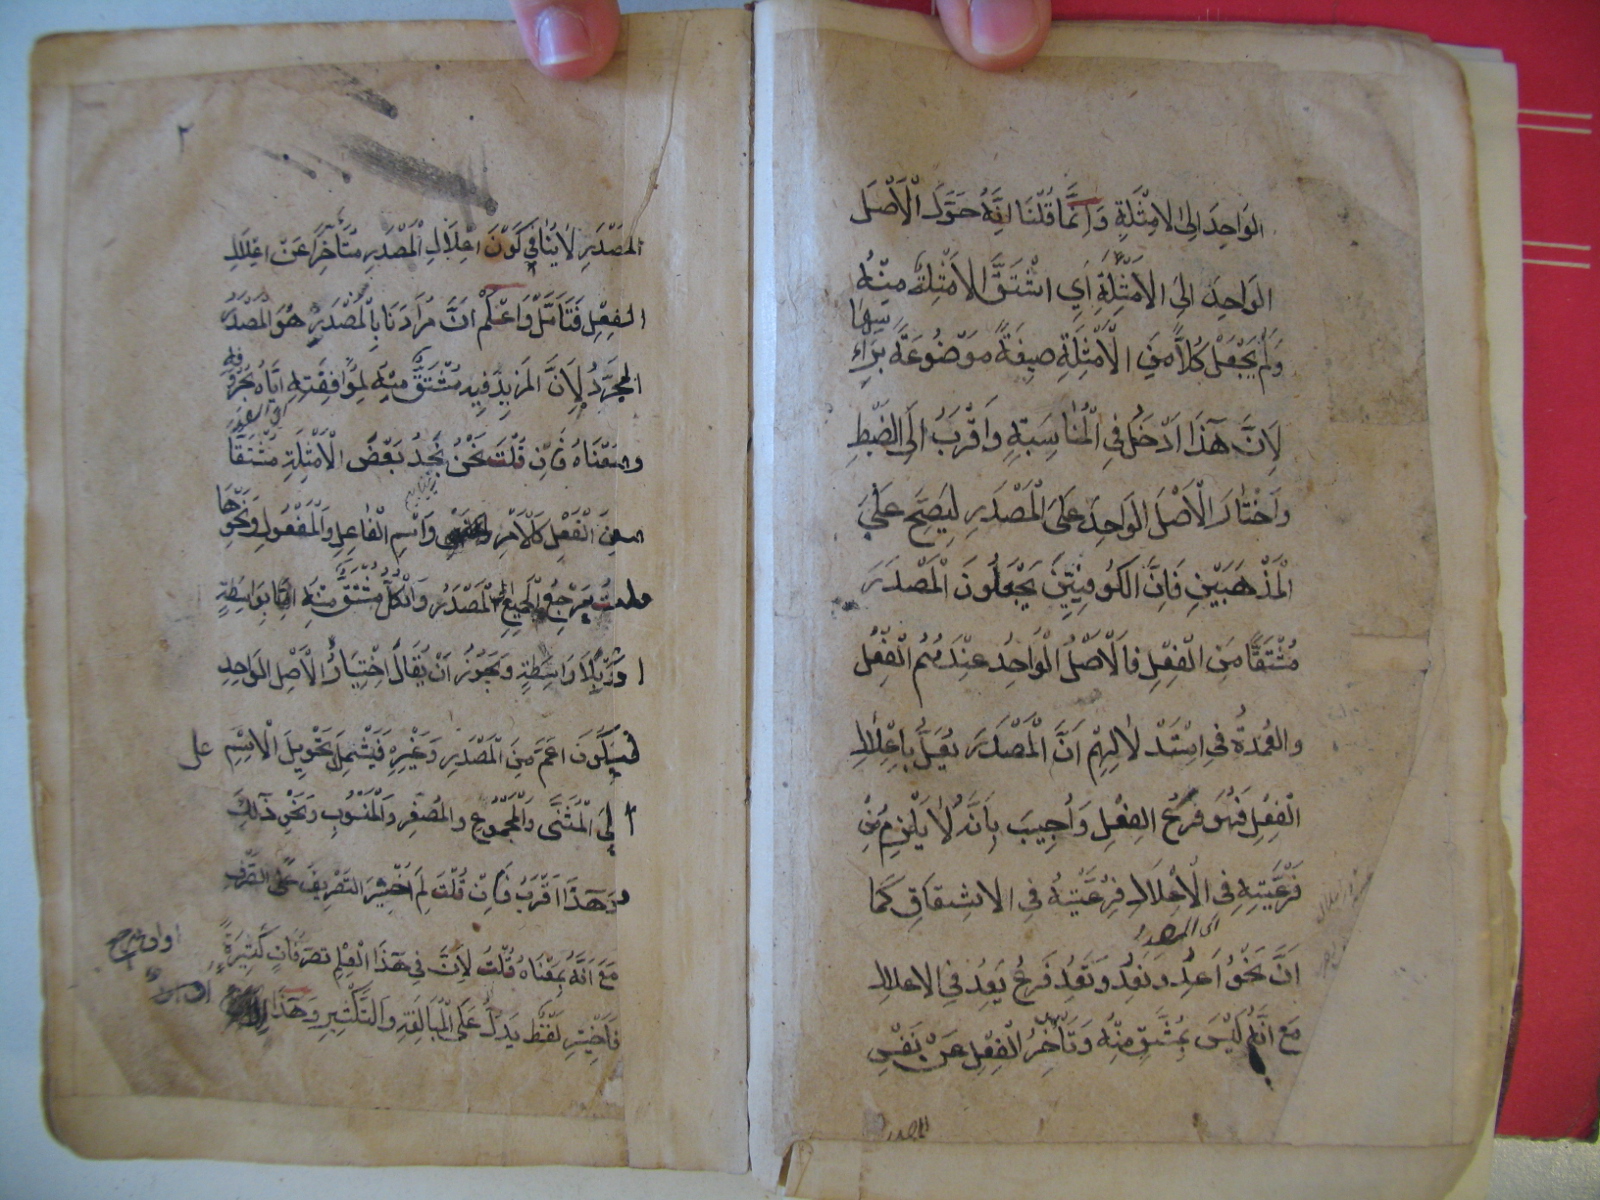 الوَاحِدَ اِلىَ الامْثِلَةِ وَاِنَّمَا قُلْنَا اِنَّهُ حَوَّلَ الْاَصْلَ
الوَاحِدَ اِلىَ الاَمْثِلَةِ اَيِ اشْتَقَّ الاَمْثِلَةَ مِنْهُ
وَلَمْ يَجْعَلْ كُلاًّ مِنَ الْاَمْثِلَةِ صِيغَةً مَوْضُوعَةً بِرَاْءِ
سِهَا
لِاَنَّ هٰذَا اَدْخَلُ فِي الْمُنَاسَبَةِ وَاَقْرَبُ اِلَى الضَّبْطِ
وَاخْتَارَ الْاَصْلَ الوَاحِدَ عَلىَ الْمَصْدَرِ لِيَصِحَّ عَلىَ
الْمَذْهَبَيْنِ فَاِنَّ الكُوفِيِّينَ يَجْعَلُونَ الْمَصْدَرَ
مُشْتَقًّا مِنَ الْفِعْلِ فَالْاَصْلُ الْوَاحِدُ عِنْدَهُم الْفِعْلُ
والعُمْدَةُ فِي اسْتِدْلاَلِهِمْ اَنَّ الْمَصْدَرَ يُعَلُّ بِاِعْلاَلِ
الْفِعْلِ فَهُوَ فَرْعُ الفِعْلِ وَاُجِيبَ بِاَنَّهُ لاَ يَلْزَمُ مِنْ
فَرْعِيَّتِهِ فِي الْاِعْلاَلِ فَرْعِيَّتُهُ فِي الاشتقاقِ كَمَا
اى المصدر
اَنَّ نَحْوَ اَعِدُ ونَعِدُ وَتَعِدُ فَرْعُ يَعِدُ فِي الاعلالِ
مَعَ اَنَّهُ لَيْسَ بِمُشْتَقٍّ مِنْهُ وَتَاَخُّرُ الْفِعْلِ عَنْ نَفْسِ
المصدر
٢
المَصْدَرِ لاَيُنَافِي كَوْنَ اِعْلاَلِ الْمَصْدَرِ مُتَاَخِّرًا عَنْ اعْلاَلِ
الفِعْلِ فَتَاَمَّلْ وَاعْلَمْ اَنَّ مُرَادَنَا بِالْمَصْدَرِ هُوَ المَصْدَرُ
المُجَرَّدُ لِاَنَّ المَزِيدَ فِيهِ مُشْتَقٌّ مِنْهُ لِمُوَافَقَتِهِ اِيَّاهُ بِحُرُوفِهِ
وَمَعْنَاهُ فَاِنْ قُلْتَ نَحْنُ نَجِدُ بَعْضَ الْاَمْثِلَةِ مُشْتَقًّا
مِنَ الْفِعْلِ كَالْاَمْرِ وَاسْمِ الْفَاعِلِ وَالْمَفْعُولِ وَنَحْوِهَا
قلتُ مَرْجِعُ الْجَمِيعِ الْمَصْدَرُ وَالْكُلُّ مُشْتَقٌّ مِنْهُ اِمَّا بِوَاسِطَةٍ
اَوْ بِلاَ وَاسِطَةٍ وَيَجُوزُ اَنْ يُقَالَ اخْتِيَارُ الْاَصْلِ الوَاحِدِ
لِيَكُونَ اعَمَّ مِنَ الْمَصْدَرِ وَغَيْرِهِ فَيَشْمَلَ تَحْوِيلَ الْاسْمِ
اِلَى الْمُثَنَّى وَالْمَجْمُوعِ والمُصَغَّرِ وَالْمَنْسُوبِ وَنَحْوِ ذٰلِكَ
وَهٰذَا اَقْرَبُ فَاِنْ قُلْتَ لِمَ اخْتِيرَ التَّصْرِيفُ عَلَى الصَّرْفِ
مَعَ اَنَّهُ بِمَعْنَاهُ قُلْتُ لِاَنَّ فِي هٰذَا الْعِلْمِ تَصَرُّفَاتٍ كَثِيرَةً
فَاخْتِيرَ لَفْظٌ يَدُلُّ عَلَى الْمُبَالَغَةِ وَالتَّكْثِيرِ وَهٰذَا